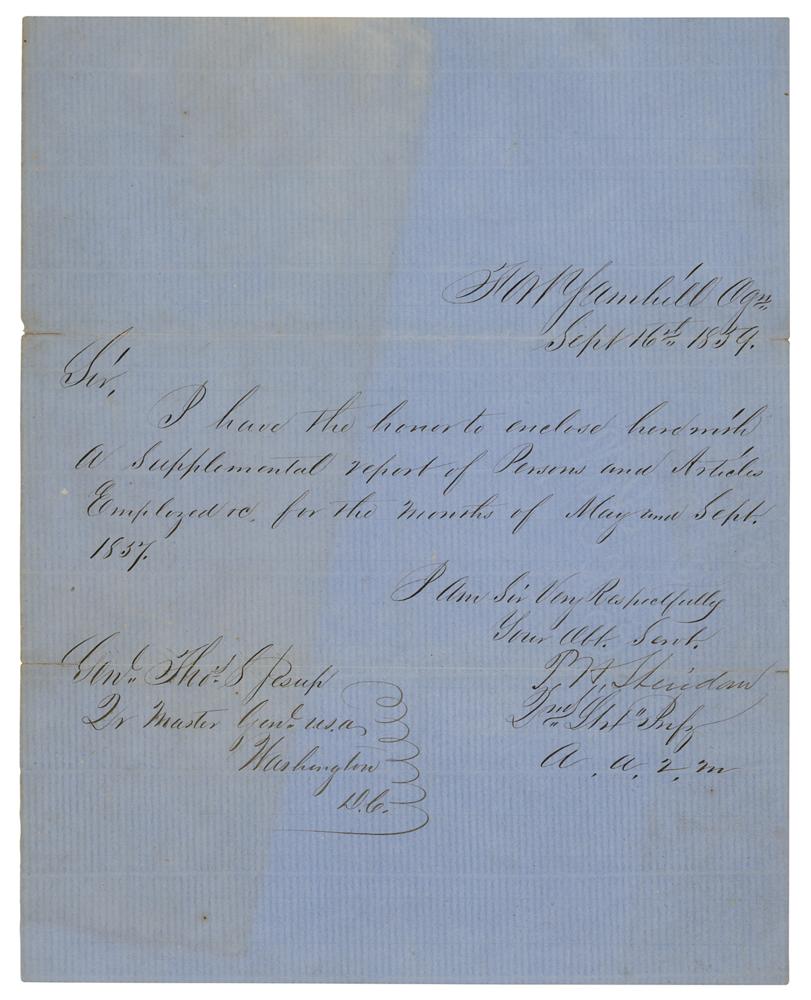 Fort Yamhill Ogn.
Sept 16th 1859.
Sir,
I have the honor to enclose herewith
A Supplemental report of Persons and Articles
Employed &c. for the months of May and Sept.
1857.
I Am Sir Very Respectfully
Your Obt. Servt.
P. H. Sheridan
2nd Lt. Infy
A. A. Q. M
Genl. Thos. S Jesup
Qr Master Genl. U.S.A.
Washington
D.C.